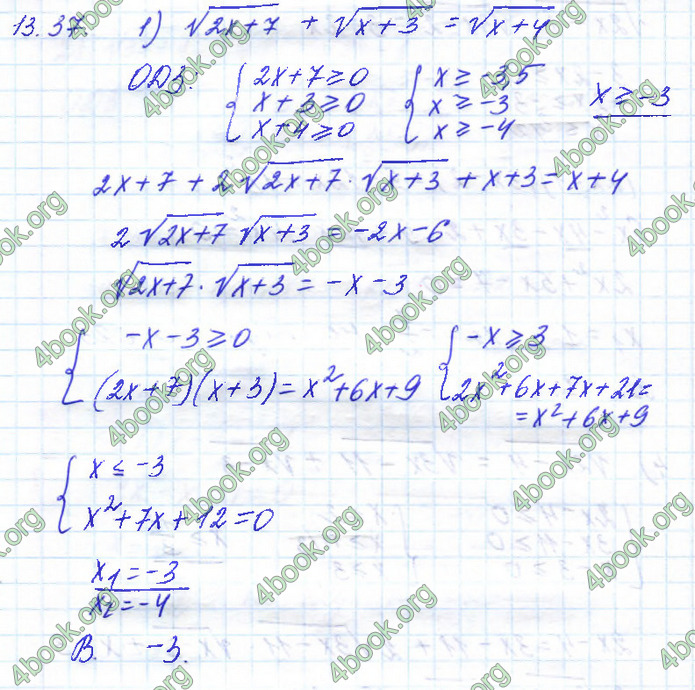 13.37. 1) √(2x+7) + √(x+3) = √(x+4)
ОДЗ: { 2x+7≥0 { x ≥ -3,5
x+3≥0 x ≥ -3 x ≥ -3
x+4≥0 x ≥ -4
2x+7+2√(2x+7)·√(x+3)+x+3=x+4
2√(2x+7) √(x+3) = -2x-6
√(2x+7)·√(x+3) = -x-3
{ -x-3≥0 { -x≥3
(2x+7)(x+3)=x²+6x+9 2x²+6x+7x+21=
=x²+6x+9
{ x ≤ -3
x²+7x+12=0
x₁=-3
x₂=-4
В. -3.
4book.org